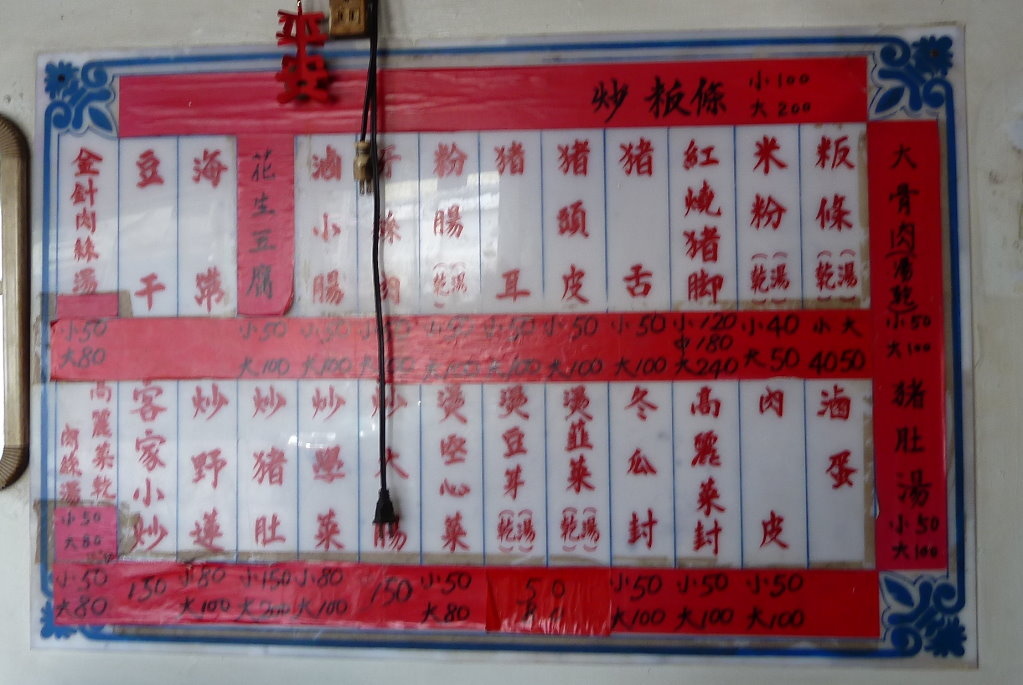 平安
炒粄條 小100 大200
大骨肉湯 小50 大100
豬肚湯 小50 大100
粄條(湯)(乾) 小40 大50
米粉(湯)(乾) 小40 大50
紅燒猪脚 小120 中180 大240
猪舌 小50 大100
猪頭皮 小50 大100
猪耳 小50 大100
粉腸(湯)(乾)
滷小腸 小50 大100
花生豆腐 小50 大100
海帶
豆干
金針肉絲湯 小50 大80
滷蛋
肉皮 小50 大100
高麗菜封 小50 大100
冬瓜封 小50 大100
燙韮菜(湯)(乾)
燙豆芽(湯)(乾)
50
80
燙空心菜 小50 大80
炒大腸 150
炒學菜 小80 大100
炒猪肚 小150 大200
炒野蓮 小80 大100
客家小炒 150
高麗菜乾肉絲湯 小50 大80
小50 大80